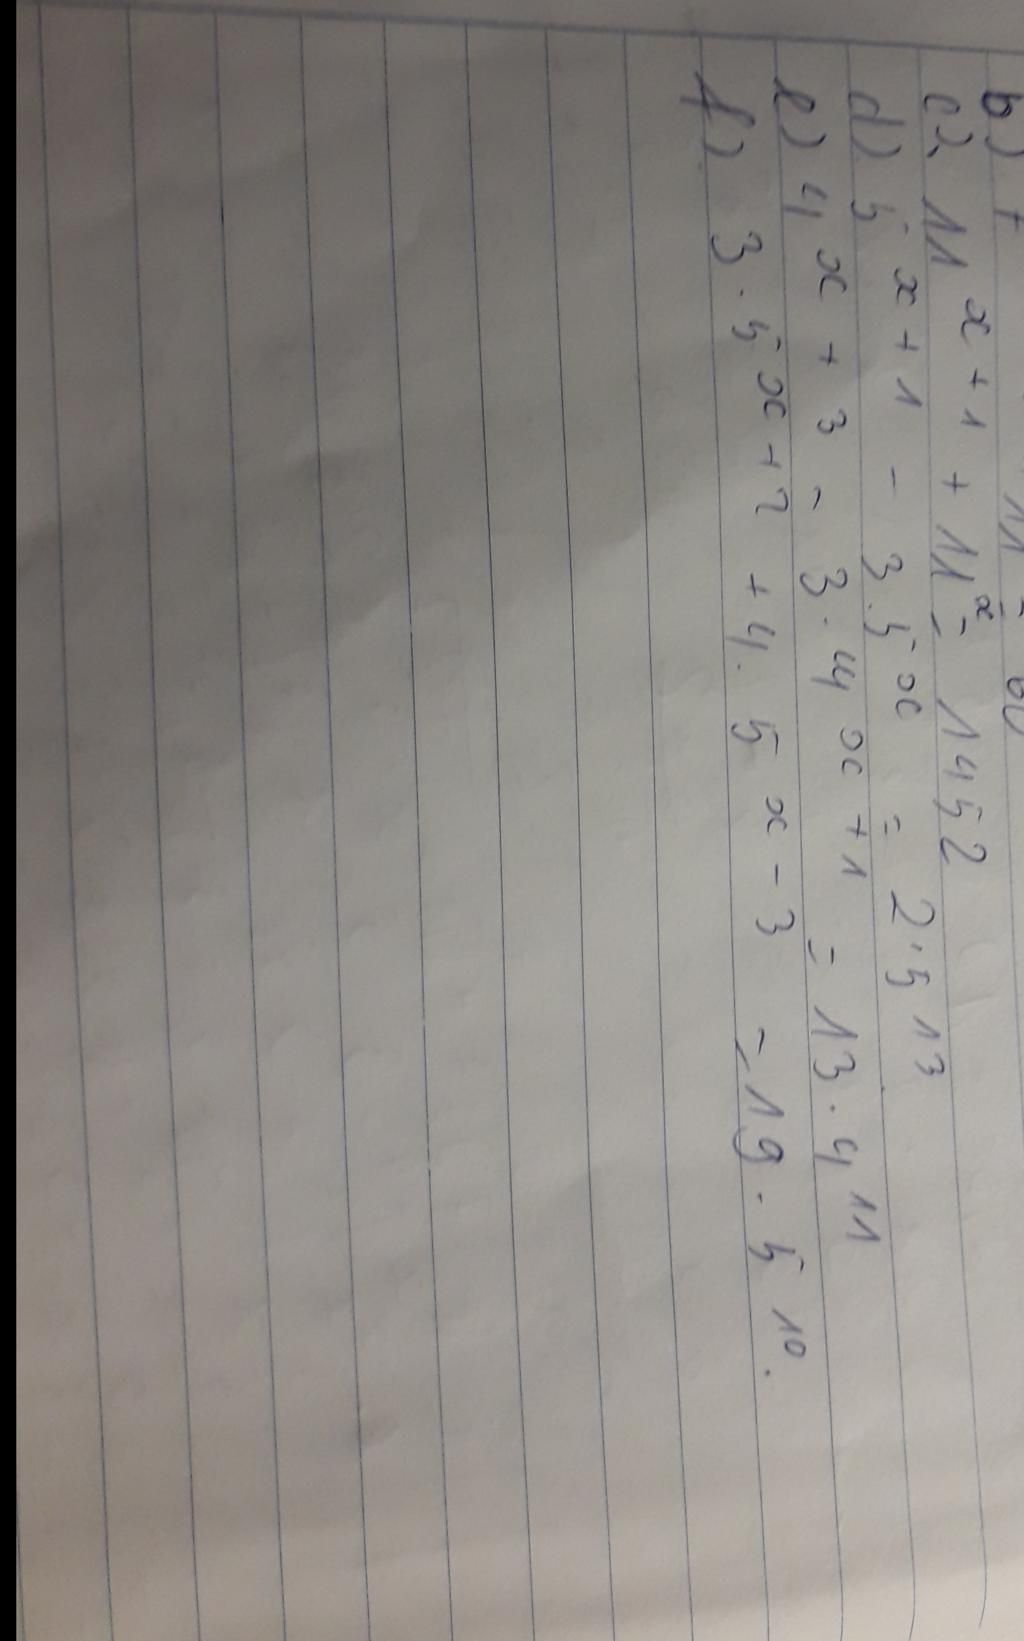 b)
c) 11^x+1 + 11^x = 1452
d) 5^x+1 - 3.5^x = 2.5^13
e) 4^x+3 - 3.4^x+1 = 13.4^11
f) 3.5^x+2 + 4.5^x-3 = 19.5^10.